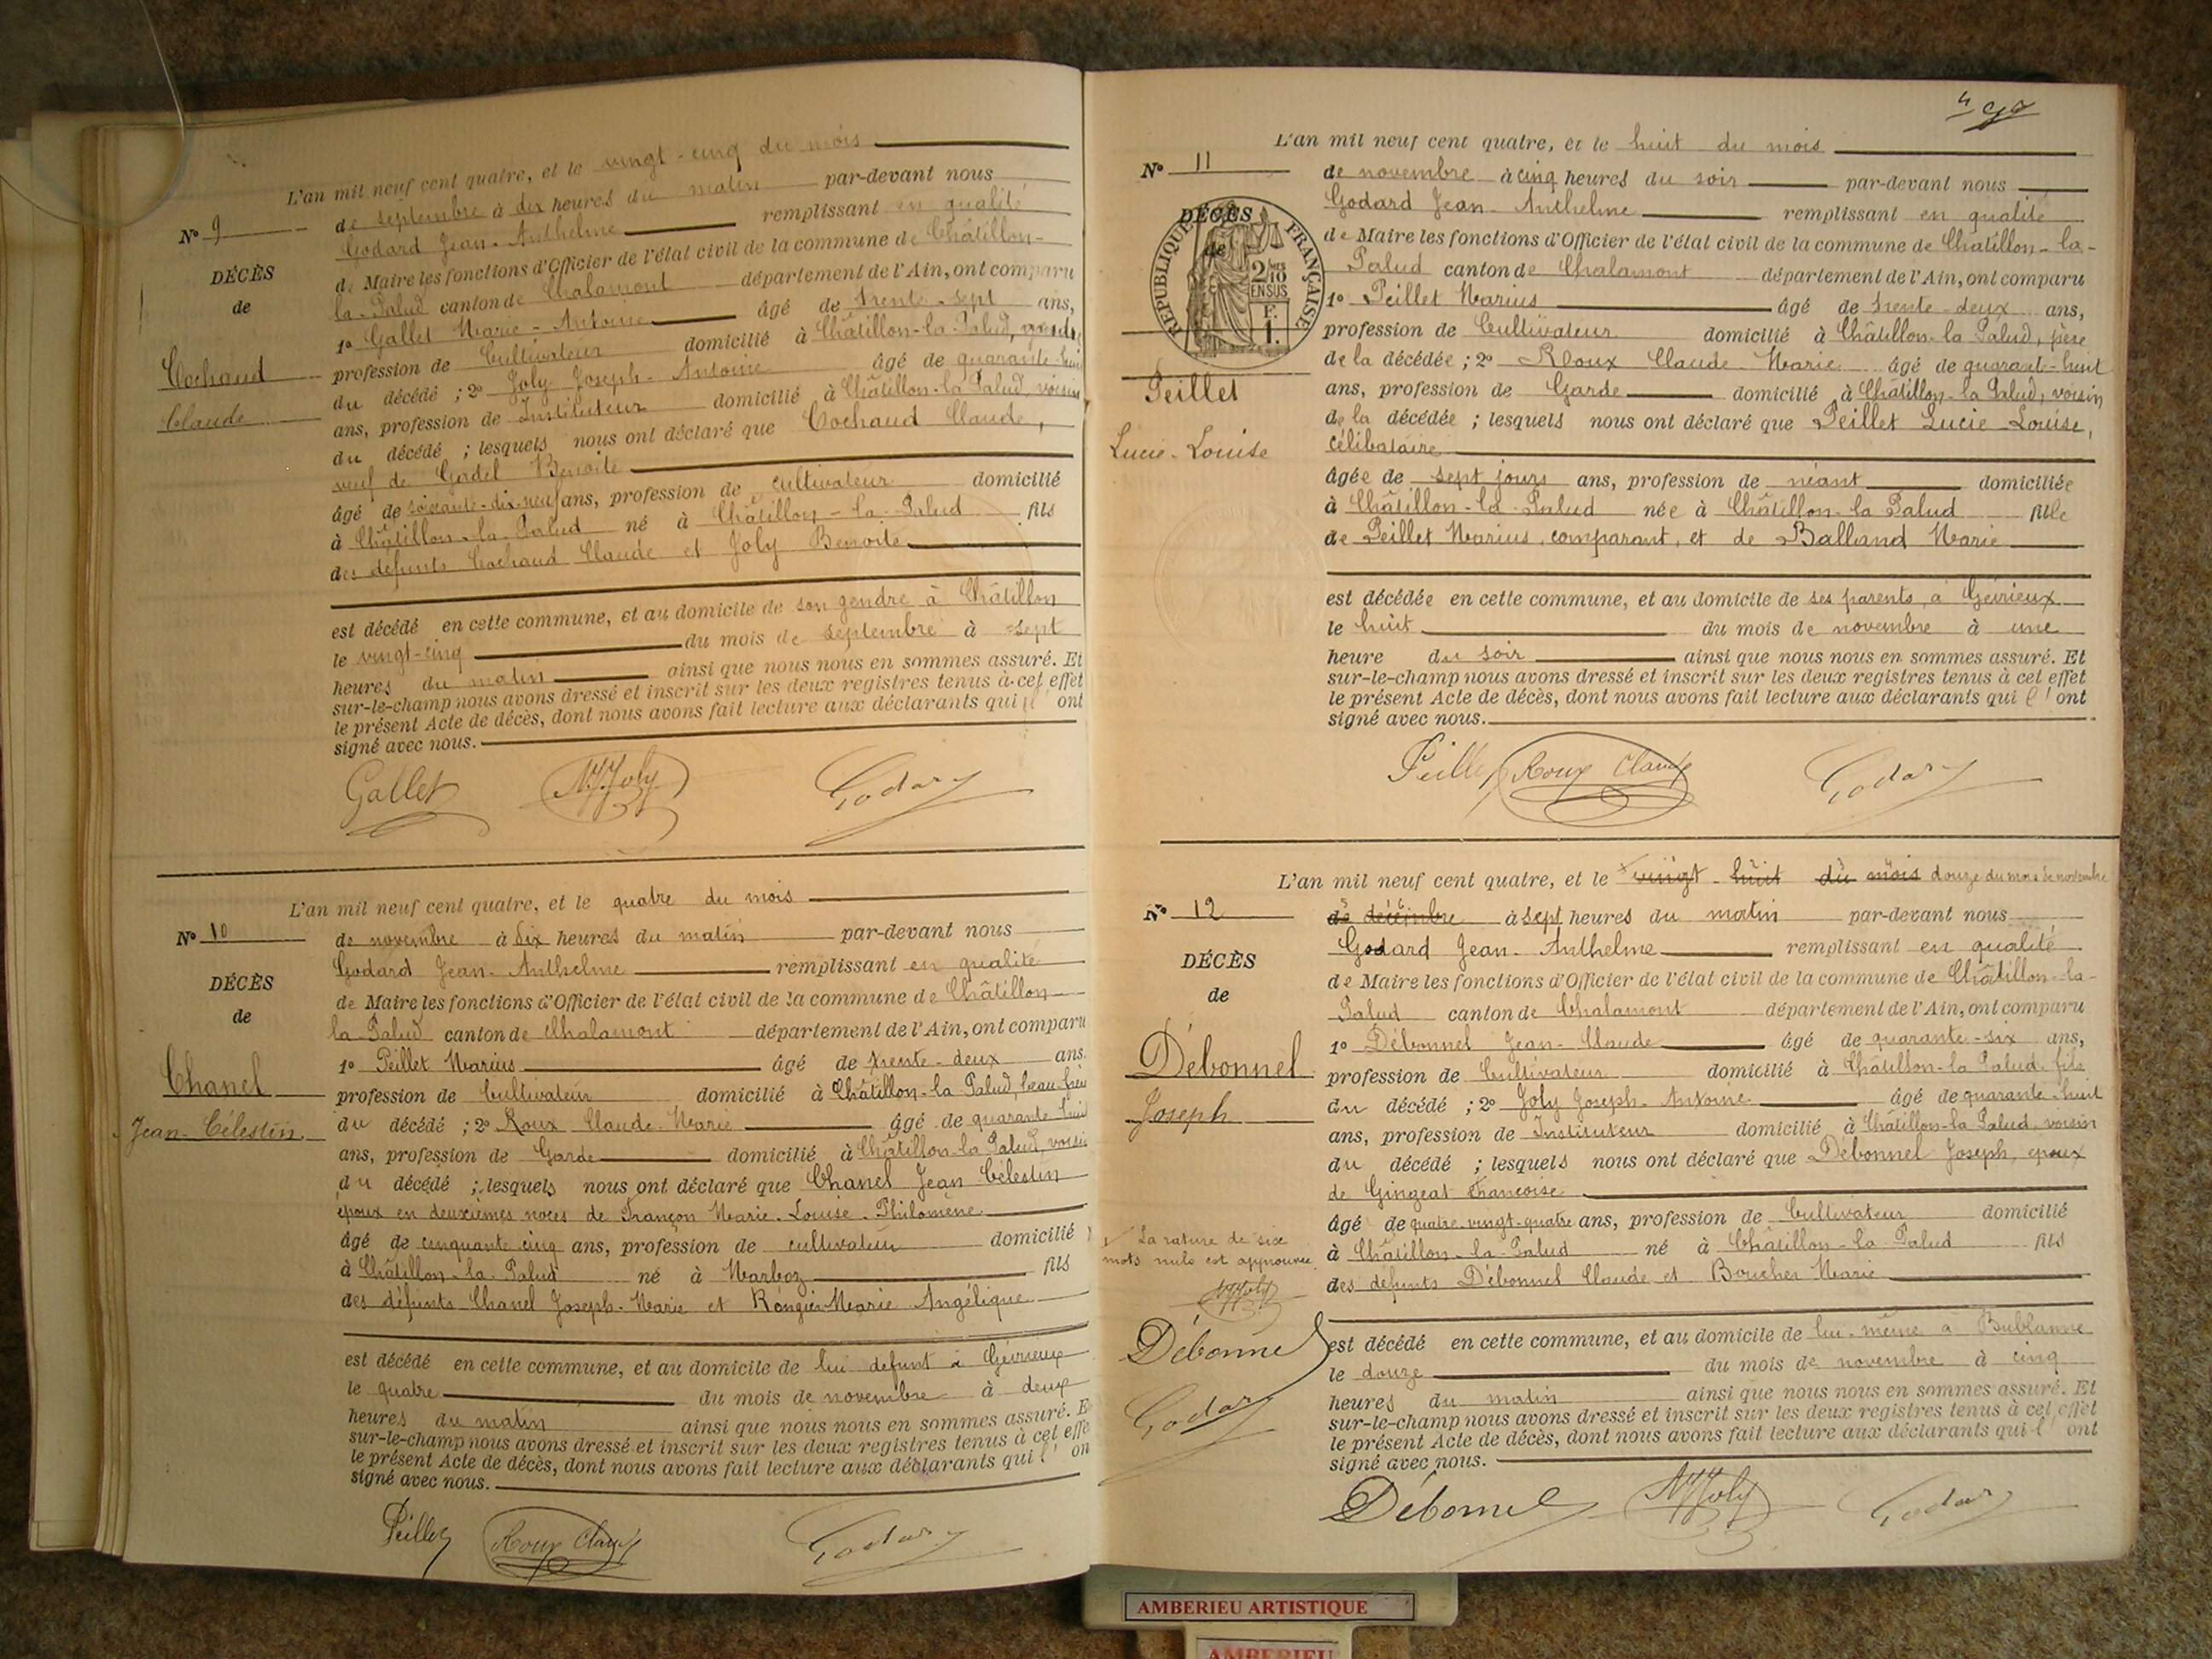 L'an mil neuf cent quatre, et le vingt-cinq du mois
de septembre à dix heures du matin par-devant nous
Godard Jean-Anthelme remplissant en qualité
de Maire les fonctions d'Officier de l'état civil de la commune de Châtillon-
la-Palud canton de Chalamont département de l'Ain, ont comparu
1º Gallet Marie-Antoine âgé de trente-sept ans,
profession de Cultivateur domicilié à Châtillon-la-Palud, gendre
du décédé ; 2º Joly Joseph-Antoine âgé de quarante-huit
ans, profession de Instituteur domicilié à Châtillon-la-Palud, voisin
du décédé ; lesquels nous ont déclaré que Cochaud Claude,
veuf de Godet Benoite
âgé de soixante-dix-neuf ans, profession de cultivateur domicilié
à Châtillon-la-Palud né à Châtillon-la-Palud fils
des défunts Cochaud Claude et Joly Benoite
est décédé en cette commune, et au domicile de son gendre à Châtillon
le vingt-cinq du mois de septembre à sept
heures du matin ainsi que nous nous en sommes assuré. Et
sur-le-champ nous avons dressé et inscrit sur les deux registres tenus à cet effet
le présent Acte de décès, dont nous avons fait lecture aux déclarants qui l' ont
signé avec nous.
Nº 9
DÉCÈS
de
Cochaud
Claude
Gallet Joly Godard
L'an mil neuf cent quatre, et le quatre du mois
de novembre à six heures du matin par-devant nous
Godard Jean-Anthelme remplissant en qualité
de Maire les fonctions d'Officier de l'état civil de la commune de Châtillon
la-Palud canton de Chalamont département de l'Ain, ont comparu
1º Peillet Marius âgé de trente-deux ans,
profession de Cultivateur domicilié à Châtillon-la-Palud, beau-frère
du décédé ; 2º Roux Claude-Marie âgé de quarante-huit
ans, profession de Garde domicilié à Châtillon-la-Palud, voisin
du décédé ; lesquels nous ont déclaré que Chanel Jean Célestin
époux en deuxièmes noces de Trançon Marie-Louise-Philomène
âgé de cinquante cinq ans, profession de cultivateur domicilié
à Châtillon-la-Palud né à Marboz fils
des défunts Chanel Joseph-Marie et Rongier Marie Angélique
est décédé en cette commune, et au domicile de lui défunt à Gévrieux
le quatre du mois de novembre à deux
heures du matin ainsi que nous nous en sommes assuré. Et
sur-le-champ nous avons dressé et inscrit sur les deux registres tenus à cet effet
le présent Acte de décès, dont nous avons fait lecture aux déclarants qui l' ont
signé avec nous.
Nº 10
DÉCÈS
de
Chanel
Jean-Célestin
Peillet Roux Claude Godard
L'an mil neuf cent quatre, et le huit du mois
de novembre à cinq heures du soir par-devant nous
Godard Jean-Anthelme remplissant en qualité
de Maire les fonctions d'Officier de l'état civil de la commune de Châtillon-la-
Palud canton de Chalamont département de l'Ain, ont comparu
1º Peillet Marius âgé de trente-deux ans,
profession de Cultivateur domicilié à Châtillon-la-Palud, père
de la décédée ; 2º Roux Claude-Marie âgé de quarante-huit
ans, profession de Garde domicilié à Châtillon-la-Palud, voisin
de la décédée ; lesquels nous ont déclaré que Peillet Lucie-Louise,
célibataire
âgée de sept jours ans, profession de néant domiciliée
à Châtillon-la-Palud née à Châtillon-la-Palud fille
de Peillet Marius, comparant, et de Balland Marie
est décédée en cette commune, et au domicile de ses parents, à Gévrieux
le huit du mois de novembre à une
heure du soir ainsi que nous nous en sommes assuré. Et
sur-le-champ nous avons dressé et inscrit sur les deux registres tenus à cet effet
le présent Acte de décès, dont nous avons fait lecture aux déclarants qui l' ont
signé avec nous.
Nº 11
DÉCÈS
de
RÉPUBLIQUE FRANÇAISE
2/10 EN SUS
F. 1.
Peillet
Lucie-Louise
Peillet Roux Claude Godard
L'an mil neuf cent quatre, et le vingt-huit du mois douze du mois de novembre
de décembre à sept heures du matin par-devant nous
Godard Jean-Anthelme remplissant en qualité
de Maire les fonctions d'Officier de l'état civil de la commune de Châtillon-la-
Palud canton de Chalamont département de l'Ain, ont comparu
1º Débonnel Jean-Claude âgé de quarante-six ans,
profession de Cultivateur domicilié à Châtillon-la-Palud fils
du décédé ; 2º Joly Joseph-Antoine âgé de quarante-huit
ans, profession de Instituteur domicilié à Châtillon-la-Palud, voisin
du décédé ; lesquels nous ont déclaré que Débonnel Joseph, époux
de Gingeat Françoise
âgé de quatre-vingt-quatre ans, profession de Cultivateur domicilié
à Châtillon-la-Palud né à Châtillon-la-Palud fils
des défunts Débonnel Claude et Boucher Marie
est décédé en cette commune, et au domicile de lui-même à Bublanne
le douze du mois de novembre à cinq
heures du matin ainsi que nous nous en sommes assuré. Et
sur-le-champ nous avons dressé et inscrit sur les deux registres tenus à cet effet
le présent Acte de décès, dont nous avons fait lecture aux déclarants qui l' ont
signé avec nous.
Nº 12
DÉCÈS
de
Débonnel
Joseph
La rature de six
mots nuls est approuvée
Joly
Débonnel
Godard
Débonnel Joly Godard
AMBERIEU ARTISTIQUE
AMBERIEU